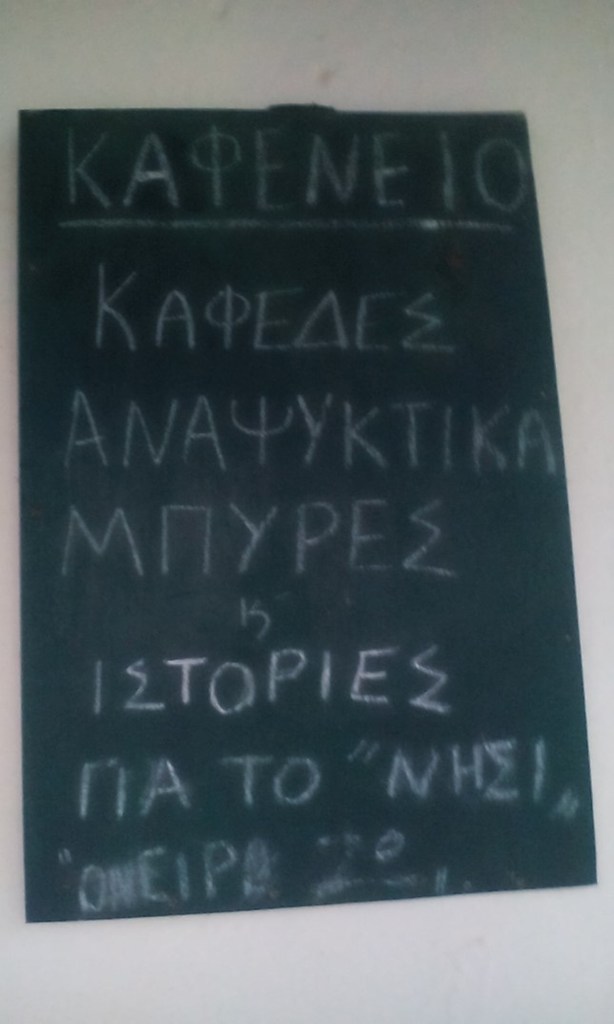 ΚΑΦΕΝΕΙΟ
ΚΑΦΕΔΕΣ
ΑΝΑΨΥΚΤΙΚΑ
ΜΠΥΡΕΣ
ϗ
ΙΣΤΟΡΙΕΣ
ΓΙΑ ΤΟ "ΝΗΣΙ„
"ΟΝΕΙΡΑ